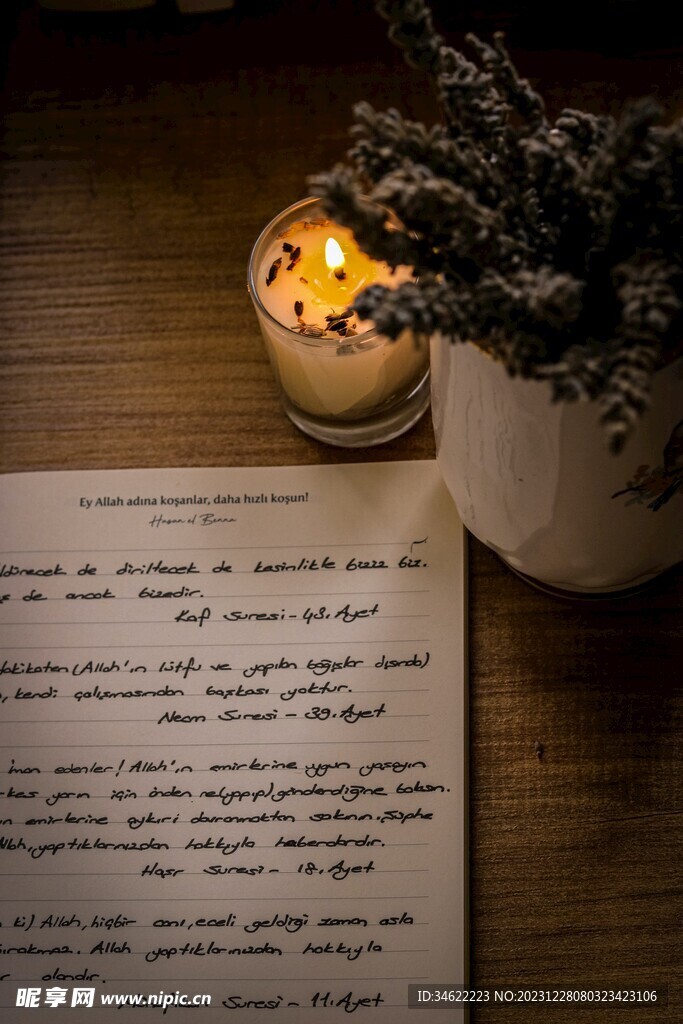 Ey Allah adına koşanlar, daha hızlı koşun!
Hasan el Benna
de diriltecek de kesinlikle bizzz biz.
de ancak bizedir.
Kaf Suresi - 43. Ayet
(Allah'ın lütfu ve yapılan bağışlar dışında)
kendi çalışmasından başkası yoktur.
Necm Suresi - 39. Ayet
iman edenler! Allah'ın emirlerine uygun yaşayın
yarın için önden ne (yapıp) gönderdiğine baksın.
emirlerine aykırı davranmaktan sakının. Şüphe
yaptıklarınızdan hakkıyla haberdardır.
Haşr Suresi - 18. Ayet
ki) Allah, hiçbir canı, eceli geldiği zaman asla
Allah yaptıklarınızdan hakkıyla
olandır.
Suresi - 11. Ayet
昵享网 www.nipic.cn
ID:34622223 NO:20231228080323423106